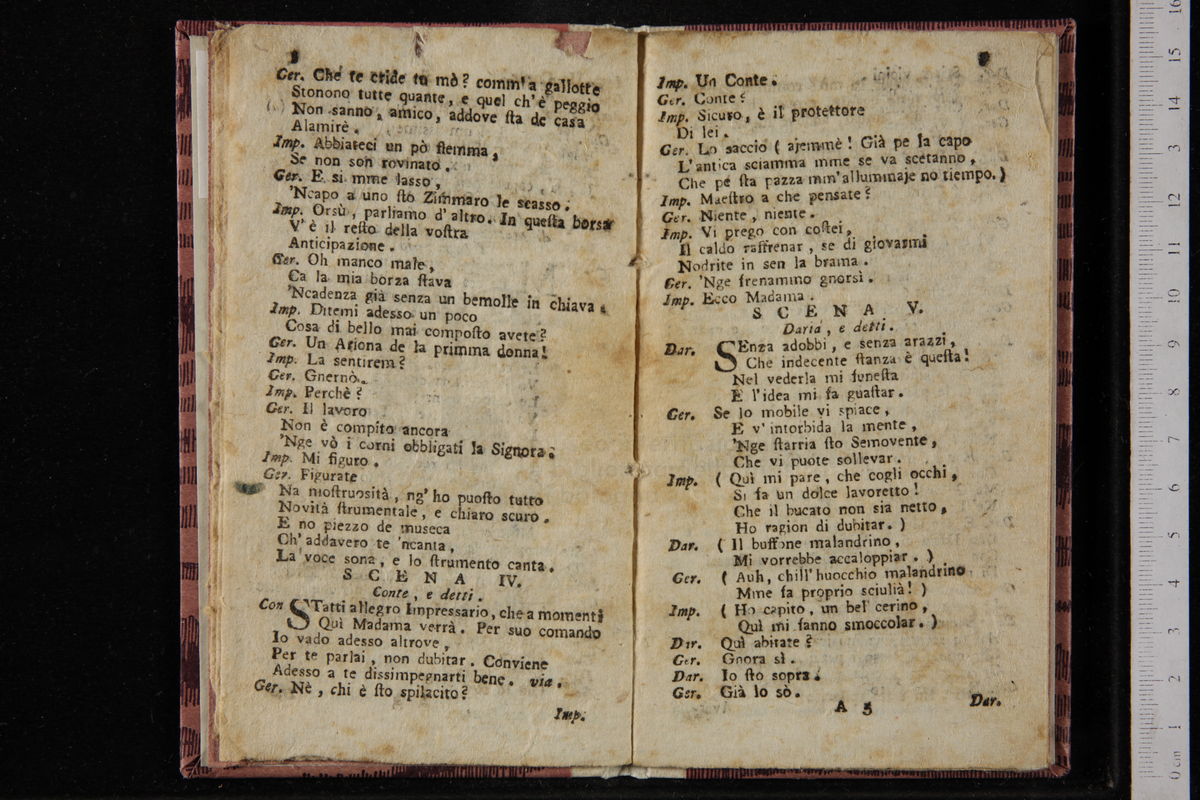 Ger. Che te cride tu mò? comm'a gallotte
Stonono tutte quante, e quel ch'è peggio
Non sanno, amico, addove ſta de casa
Alamirè.
Imp. Abbiateci un pò flemma,
Se non son rovinato.
Ger. E si mme lasso,
'Ncapo a uno ſto Zimmaro le scasso.
Imp. Orsù, parliamo d'altro. In queſta borsa
V'è il reſto della voſtra
Anticipazione.
Ger. Oh manco male,
Ca la mia borza ſtava
'Ncadenza già senza un bemolle in chiava.
Imp. Ditemi adesso un poco
Cosa di bello mai compoſto avete?
Ger. Un Ariona de la primma donna!
Imp. La sentirem?
Ger. Gnernò.
Imp. Perchè?
Ger. Il lavoro
Non è compito ancora
'Nge vò i corni obbligati la Signora.
Imp. Mi figuro.
Ger. Figurate
Na moſtruosità, ng'ho puoſto tutto
Novità ſtrumentale, e chiaro scuro.
E no piezzo de museca
Ch'addavero te 'ncanta,
La voce sona, e lo ſtrumento canta.
SCENA IV.
Conte, e detti.
Con STatti allegro Impressario, che a momenti
Quì Madama verrà. Per suo comando
Io vado adesso altrove,
Per te parlai, non dubitar. Conviene
Adesso a te dissimpegnarti bene. via.
Ger. Nè, chi è ſto spilacito?
Imp.
Imp. Un Conte.
Ger. Conte?
Imp. Sicuro, è il protettore
Di lei.
Ger. Lo saccio ( ajemmè! Già pe la capo
L'antica sciamma mme se va scetanno,
Che pe ſta pazza mm'allummaje no tiempo.)
Imp. Maeſtro a che pensate?
Ger. Niente, niente.
Imp. Vi prego con coſtei,
Il caldo raffrenar, se di giovarmi
Nodrite in sen la brama.
Ger. 'Nge frenammo gnorsì.
Imp. Ecco Madama.
SCENA V.
Daria, e detti.
Dar. SEnza adobbi, e senza arazzi,
Che indecente ſtanza è queſta!
Nel vederla mi funeſta
E l'idea mi fa guaſtar.
Ger. Se lo mobile vi spiace,
E v'intorbida la mente,
'Nge ſtarria ſto Semovente,
Che vi puote sollevar.
Imp. ( Quì mi pare, che cogli occhi,
Si fa un dolce lavoretto!
Che il bucato non sia netto,
Ho ragion di dubitar. )
Dar. ( Il buffone malandrino,
Mi vorrebbe accaloppiar. )
Ger. ( Auh, chill'huocchio malandrino
Mme fa proprio sciulià! )
Imp. ( Ho capito, un bel cerino,
Quì mi fanno smoccolar. )
Dar. Quì abitate?
Ger. Gnora sì.
Dar. Io ſto sopra.
Ger. Già lo sò.
A 5
Dar.
0 cm 1 2 3 4 5 6 7 8 9 10 11 12 13 14 15 16